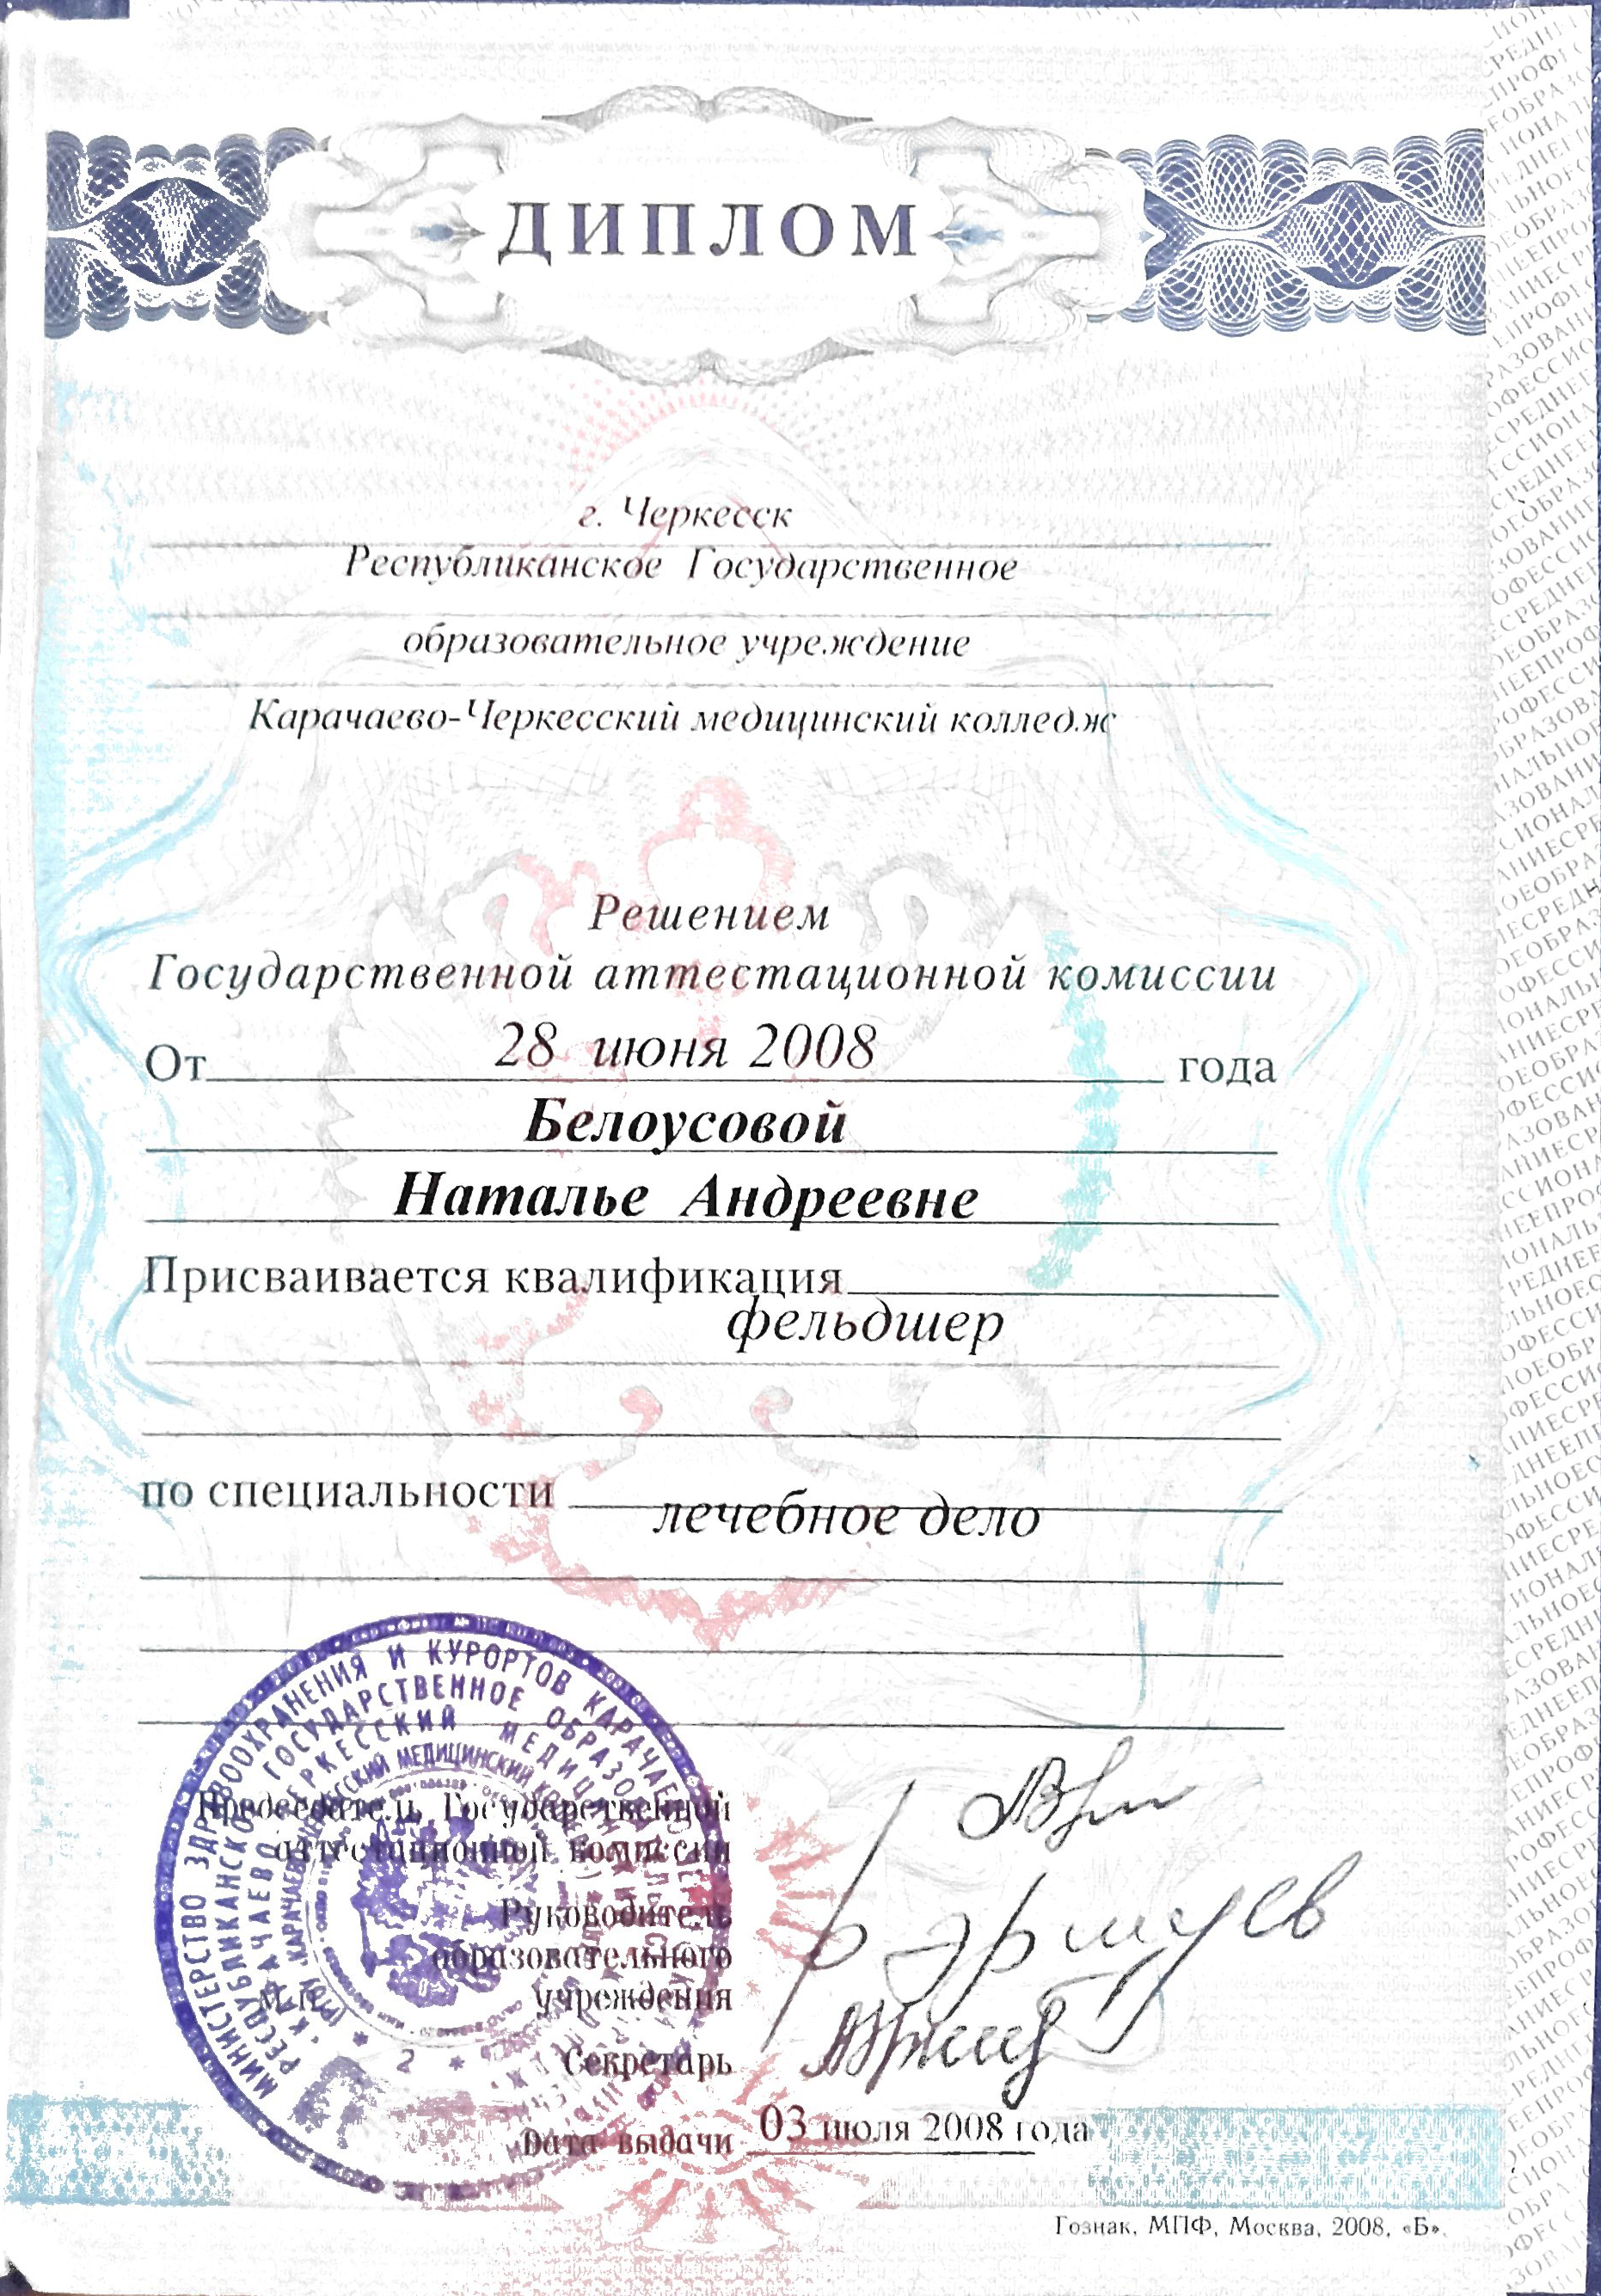 ДИПЛОМ
г. Черкесск
Республиканское Государственное
образовательное учреждение
Карачаево-Черкесский медицинский колледж
Решением
Государственной аттестационной комиссии
От 28 июня 2008 года
Белоусовой
Наталье Андреевне
Присваивается квалификация
фельдшер
по специальности
лечебное дело
МИНИСТЕРСТВО ЗДРАВООХРАНЕНИЯ И КУРОРТОВ
РЕСПУБЛИКАНСКОЕ ГОСУДАРСТВЕННОЕ
КАРАЧАЕВО-ЧЕРКЕССКИЙ
МЕДИЦИНСКИЙ
* 2 *
Председатель Государственной
аттестационной комиссии
Руководитель
образовательного
учреждения
М.П.
Секретарь
Дата выдачи 03 июля 2008 года
Гознак, МПФ, Москва, 2008, «Б».